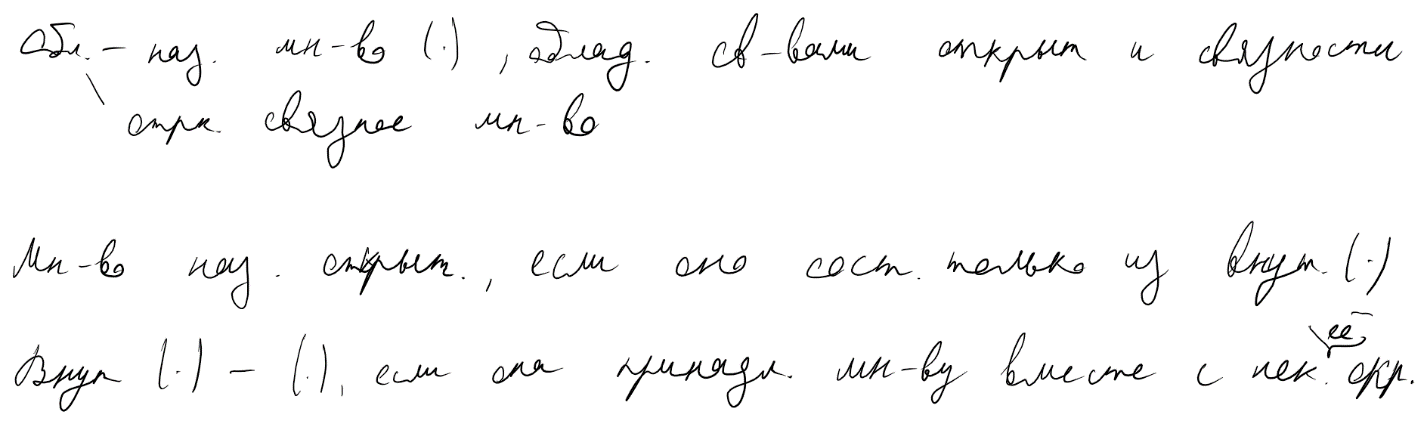 Обл. – наз. мн-во (·), облад. св-вами открыт и связности
откр. связное мн-во
Мн-во наз. открыт., если оно сост. только из внут. (·)
Внут (·) – (·), если она принадл. мн-ву вместе с нек. её окр.